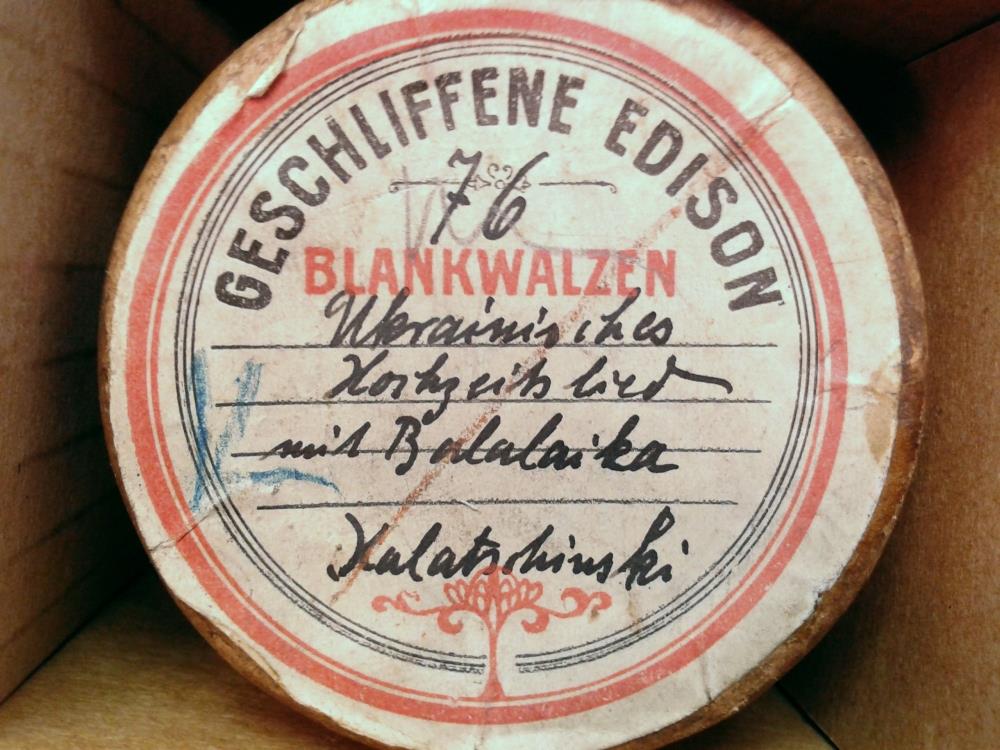 GESCHLIFFENE EDISON
76
BLANKWALZEN
Ukrainisches
Hochzeitslied
mit Balalaika
Kalatschinski